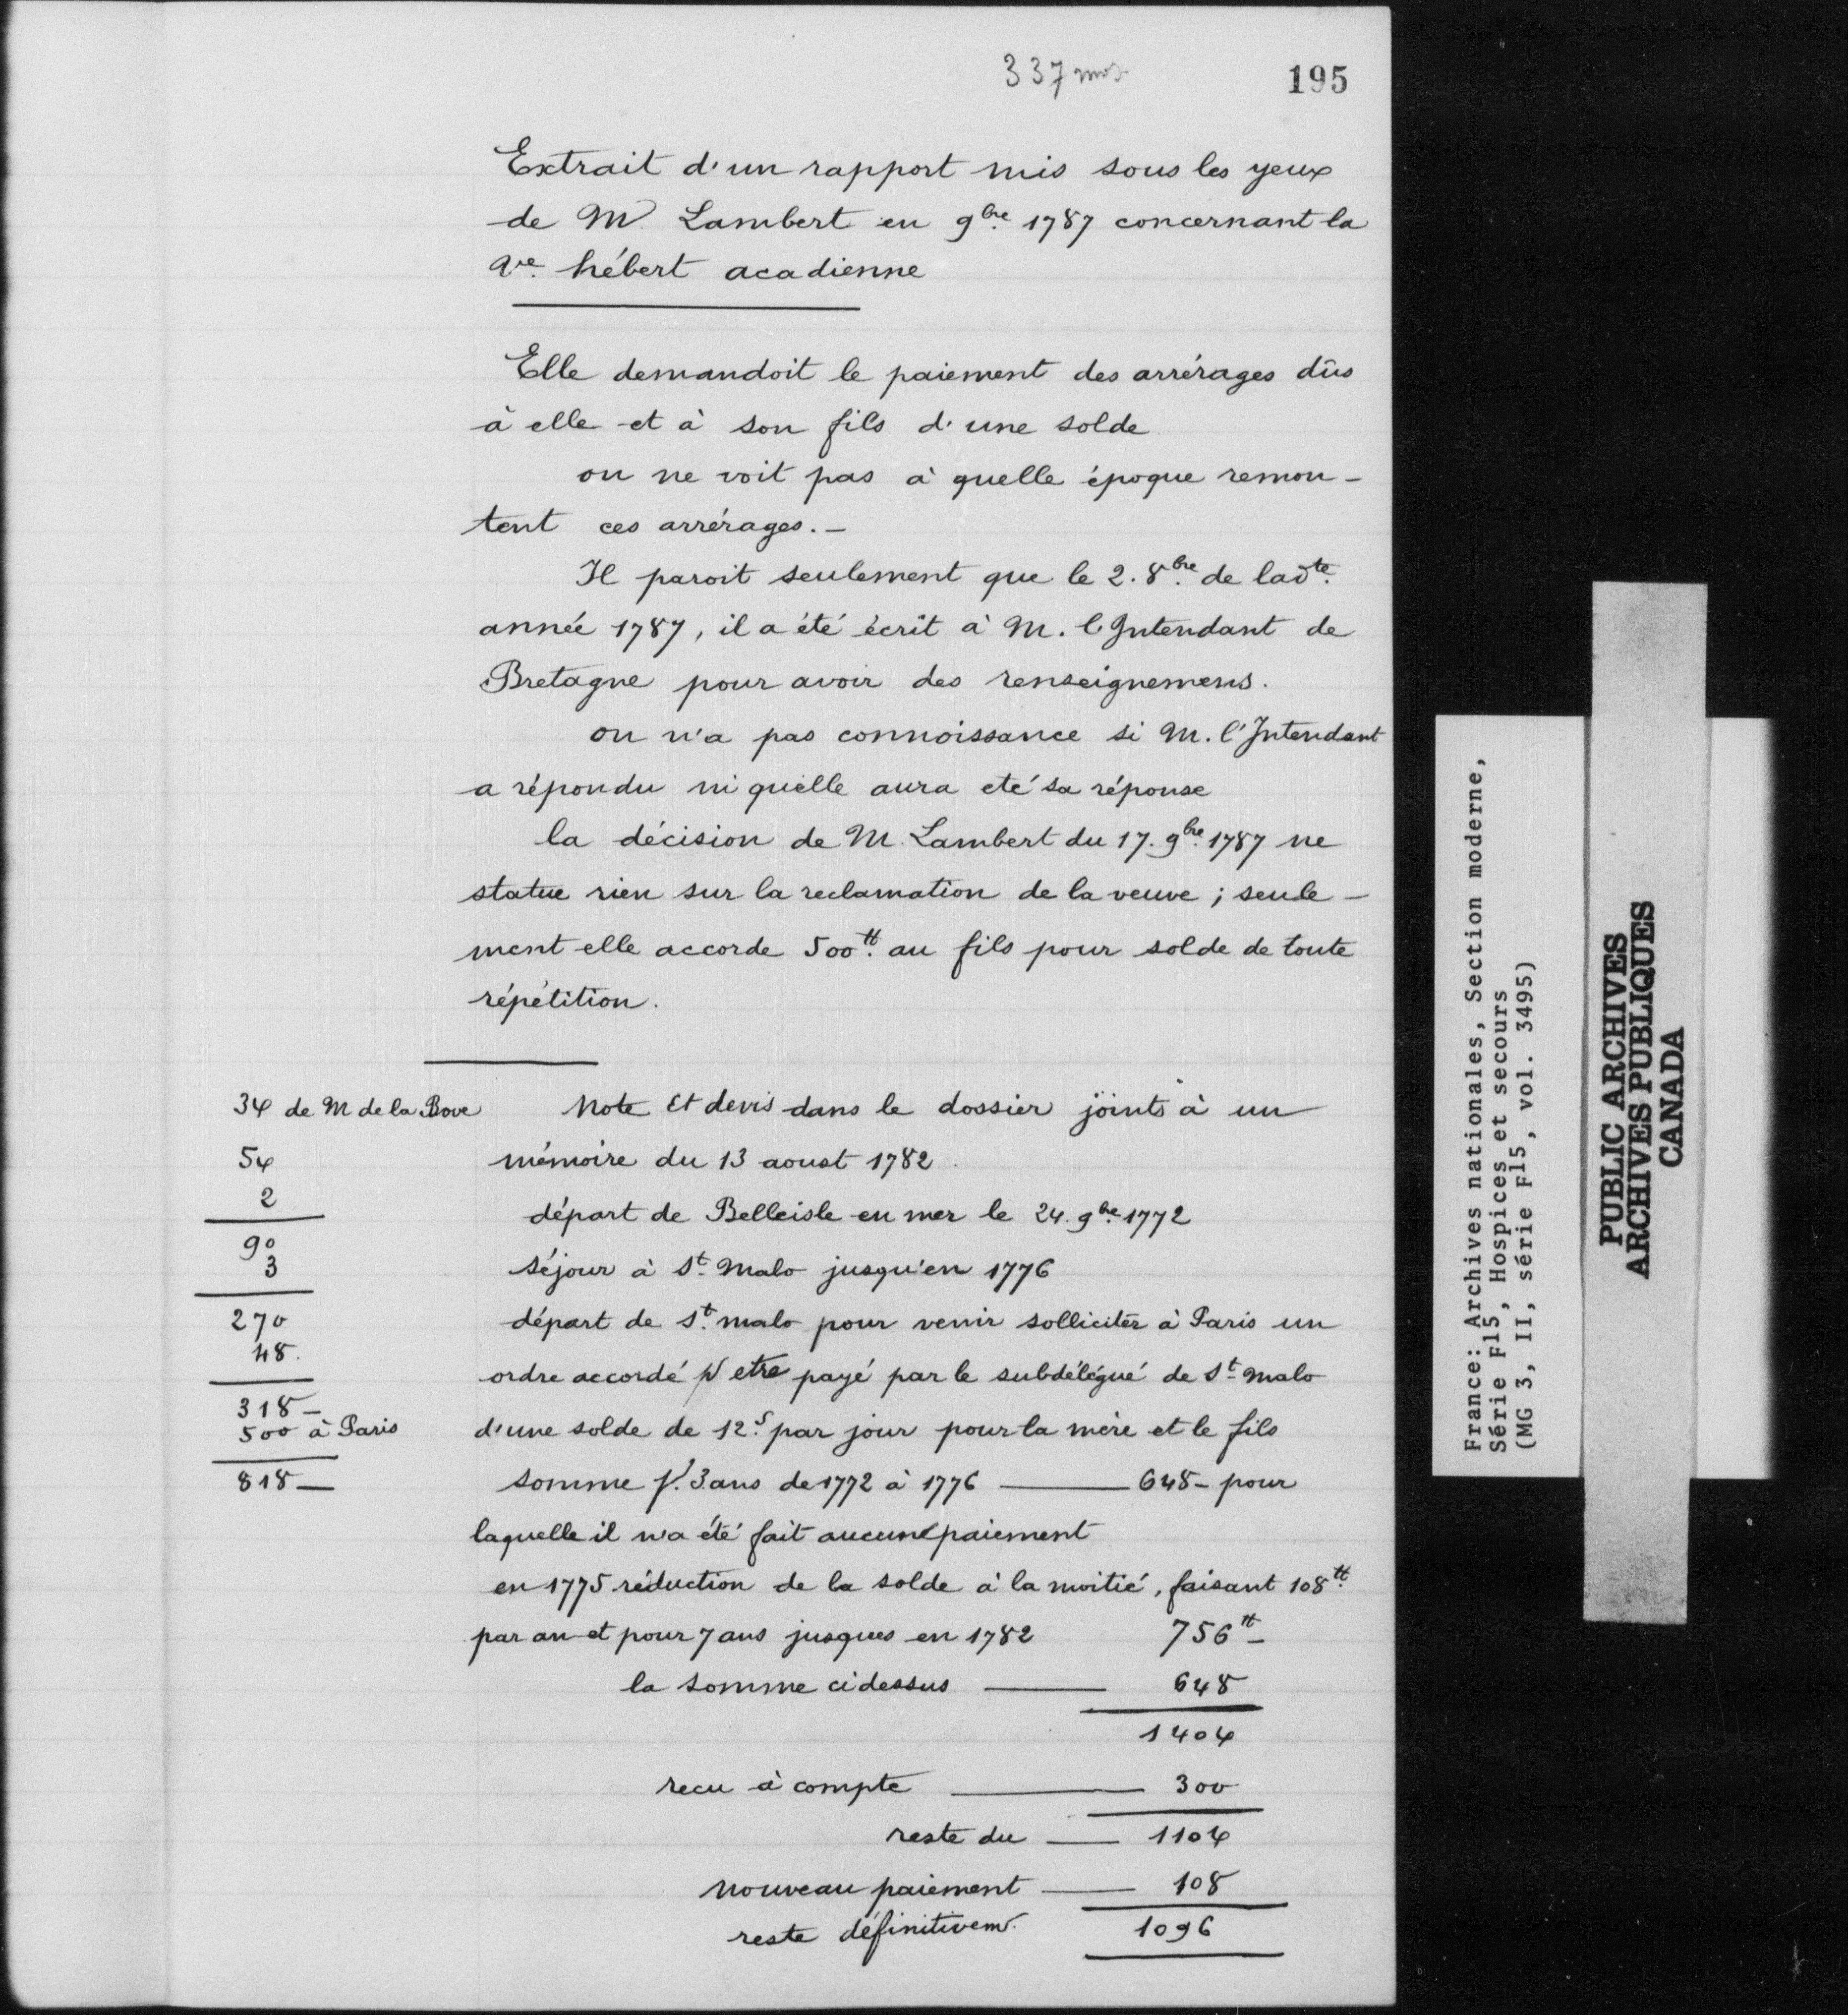 337 mos
195
Extrait d'un rapport mis sous les yeux
de M Lambert en 9bre 1787 concernant la
Ve hébert acadienne
Elle demandoit le paiement des arrérages dûs
à elle et à son fils d'une solde
on ne voit pas à quelle époque remon-
tent ces arrérages.-
Il paroit seulement que le 2. 8bre de ladte
année 1787, il a été écrit à M. l'Intendant de
Bretagne pour avoir des renseignemens.
on n'a pas connoissance si M. l'Intendant
a répondu ni quelle aura eté sa réponse
la décision de M. Lambert du 17. 9bre 1787 ne
statue rien sur la reclamation de la veuve ; seule-
ment elle accorde 500tt au fils pour solde de toute
répétition.
34 de M de la Bove
54
2
90
3
270
48.
318-
500 à Paris
818-
Note et devis dans le dossier joints à un
mémoire du 13 aoust 1782.
départ de Belleisle en mer le 24. 9bre 1772
séjour à St Malo jusqu'en 1776
départ de St malo pour venir solliciter à Paris un
ordre accordé pr etre payé par le subdélégué de St Malo
d'une solde de 12s par jour pour la mère et le fils
somme pr 3 ans de 1772 à 1776 — 648- pour
laquelle il n'a été fait aucune paiement
en 1775 réduction de la solde à la moitié, faisant 108tt
par an et pour 7 ans jusques en 1782 756tt-
la somme cidessus — 648
1404
recu à compte — 300
reste du — 1104
nouveau paiement — 108
reste définitivemt 1096
France: Archives nationales, Section moderne,
Série F15, Hospices et secours
(MG 3, II, série F15, vol. 3495)
PUBLIC ARCHIVES
ARCHIVES PUBLIQUES
CANADA